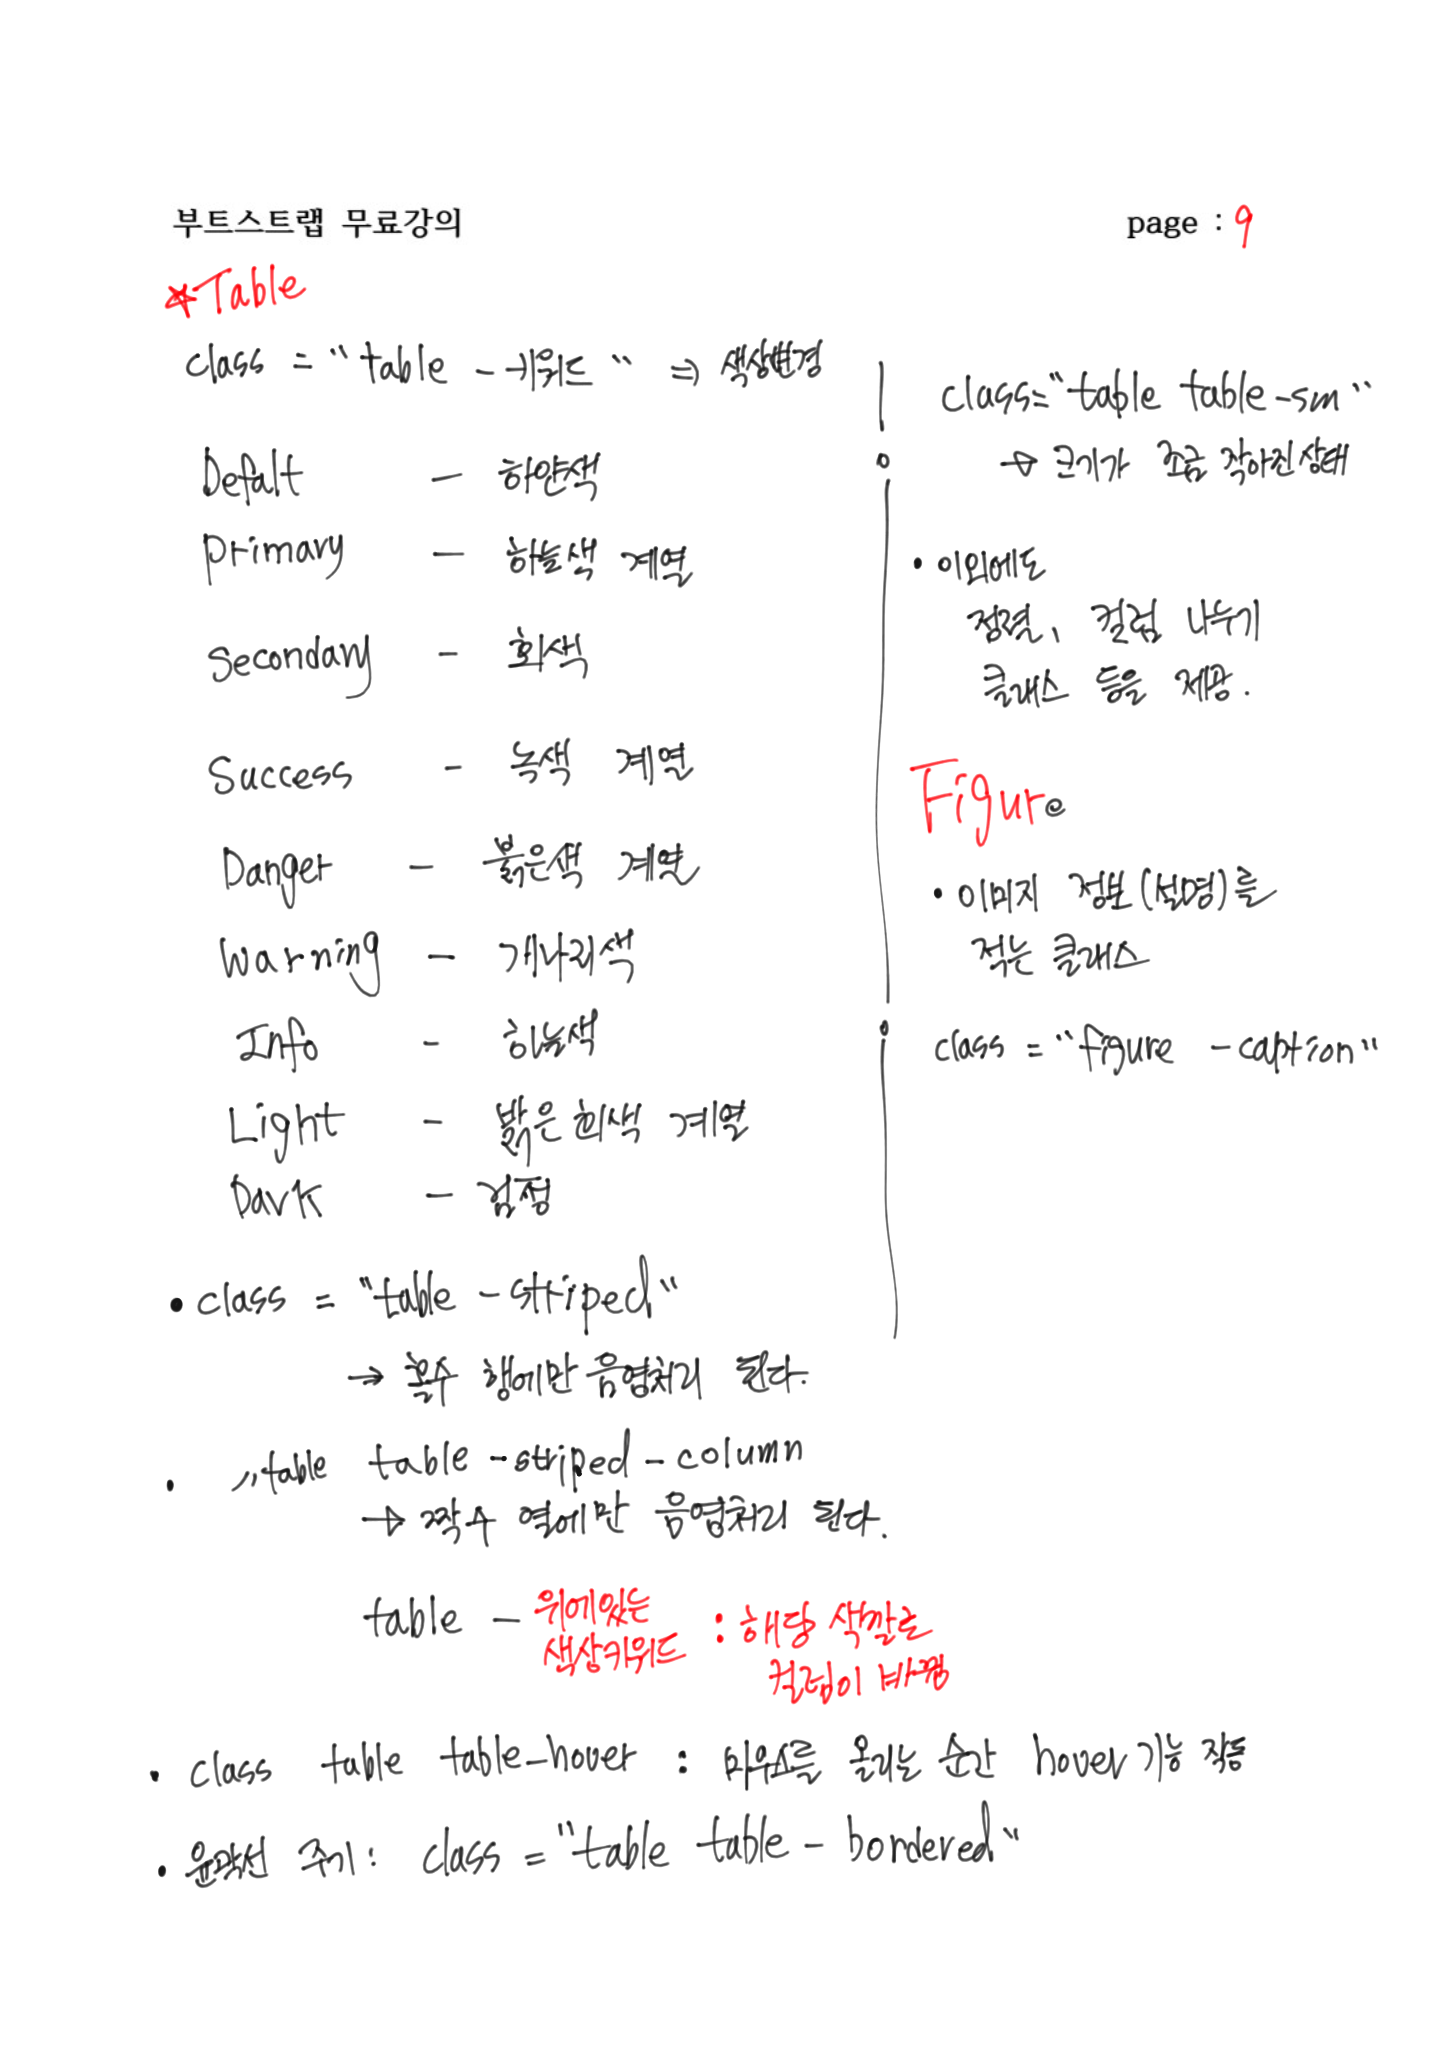 부트스트랩 무료강의
page : 9
*Table
class = "table -키워드" ⇒ 색상변경
Defalt - 하얀색
primary - 하늘색 계열
Secondary - 회색
Success - 녹색 계열
Danger - 붉은색 계열
Warning - 개나리색
Info - 하늘색
Light - 밝은회색 계열
Dark - 검정
• class = "table -striped"
→ 홀수 행에만 음영처리 된다.
• "table table-striped-column
→ 짝수 열에만 음영처리 된다.
table - 위에있는 색상키워드 : 해당 색깔로
컬럼이 바뀜
• class table table-hover : 마우스를 올리는 순간 hover 기능 작동
• 윤곽선 주기 : class = "table table - bordered"
class="table table-sm"
→ 크기가 조금 작아진상태
• 이외에도
정렬, 컬럼 나누기
클래스 등을 제공.
Figure
• 이미지 정보(설명)를
적는 클래스
class = "figure -caption"